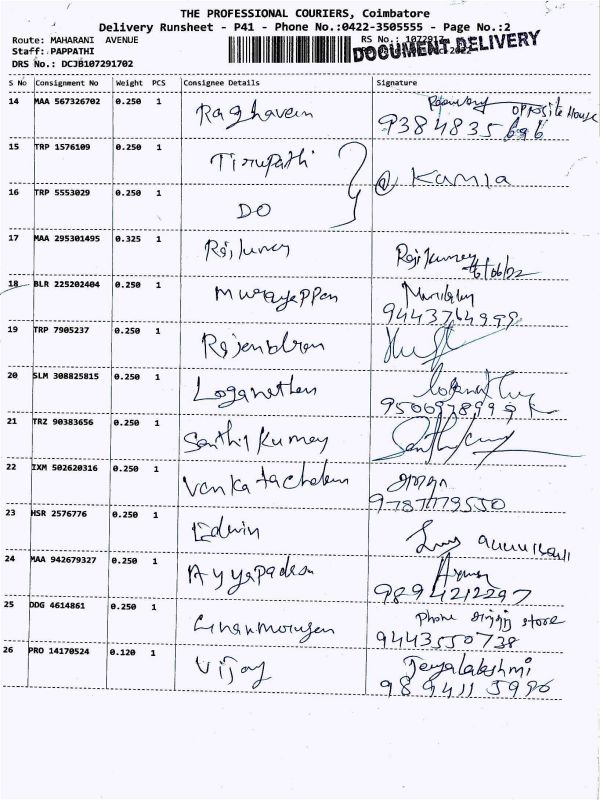 THE PROFESSIONAL COURIERS, Coimbatore
Delivery Runsheet - P41 - Phone No.:0422-3505555 - Page No.:2
Route: MAHARANI AVENUE
Staff: PAPPATHI
DRS No.: DCJB107291702
DOCUMENT DELIVERY
S No Consignment No Weight PCS Consignee Details Signature
14 MAA 567326702 0.250 1 Raghaven opposite House
9384835696
15 TRP 1576109 0.250 1 Tirupathi
@ Kamla
16 TRP 5553029 0.250 1 DO
17 MAA 295301495 0.325 1 Rajkumar Rajkumar
18 BLR 225202404 0.250 1 Murugappan
9443764999
19 TRP 7905237 0.250 1 Rajendran
20 SLM 308825815 0.250 1 Loganathan
21 TRZ 90383656 0.250 1 Santhil Kumar
22 IXM 502620316 0.250 1 Venkatachalam
9787779550
23 HSR 2576776 0.250 1 Edwin
24 MAA 942679327 0.250 1 Ayyapadasa
9894212297
25 DDG 4614861 0.250 1 Phone store
9443550738
26 PRO 14170524 0.120 1 Vijay Jeyalakshmi
9894115990